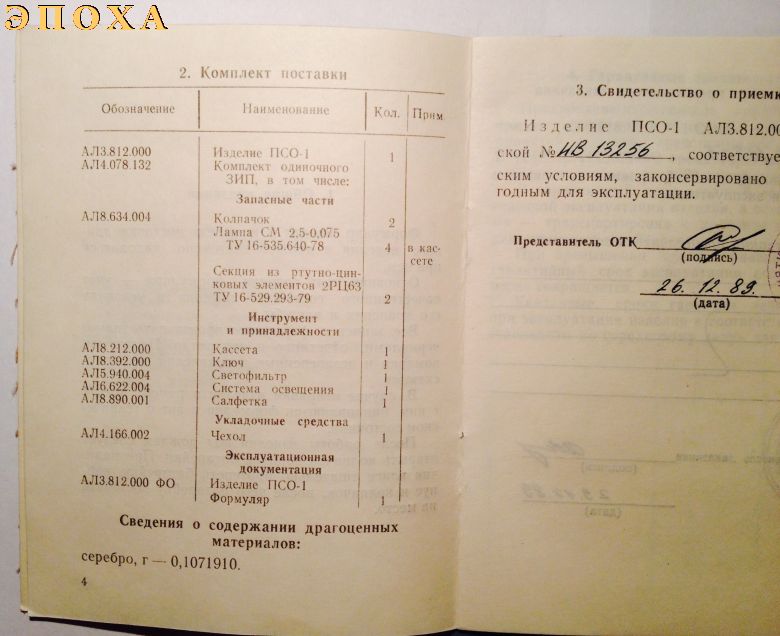 ЭПОХА
2. Комплект поставки
Обозначение Наименование Кол. Прим
АЛ3.812.000 Изделие ПСО-1 1
АЛ4.078.132 Комплект одиночного
ЗИП, в том числе:
Запасные части
АЛ8.634.004 Колпачок 2
Лампа СМ 2,5-0,075
ТУ 16-535.640-78 4 в кас-
сете
Секция из ртутно-цин-
ковых элементов 2РЦ63
ТУ 16-529.293-79 2
Инструмент
и принадлежности
АЛ8.212.000 Кассета 1
АЛ8.392.000 Ключ 1
АЛ5.940.004 Светофильтр 1
АЛ6.622.004 Система освещения 1
АЛ8.890.001 Салфетка 1
Укладочные средства
АЛ4.166.002 Чехол 1
Эксплуатационная
документация
АЛ3.812.000 ФО Изделие ПСО-1
Формуляр 1
Сведения о содержании драгоценных
материалов:
серебро, г — 0,1071910.
4
3. Свидетельство о приемк
Изделие ПСО-1 АЛ3.812.00
ской № ИВ 13256, соответствуе
ским условиям, законсервировано
годным для эксплуатации.
Представитель ОТК
(подпись)
26. 12. 89.
(дата)